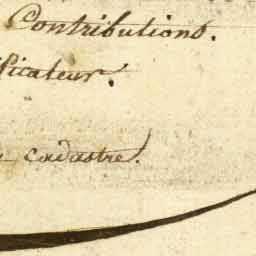 Contributions.
ificateur.
cadastre.